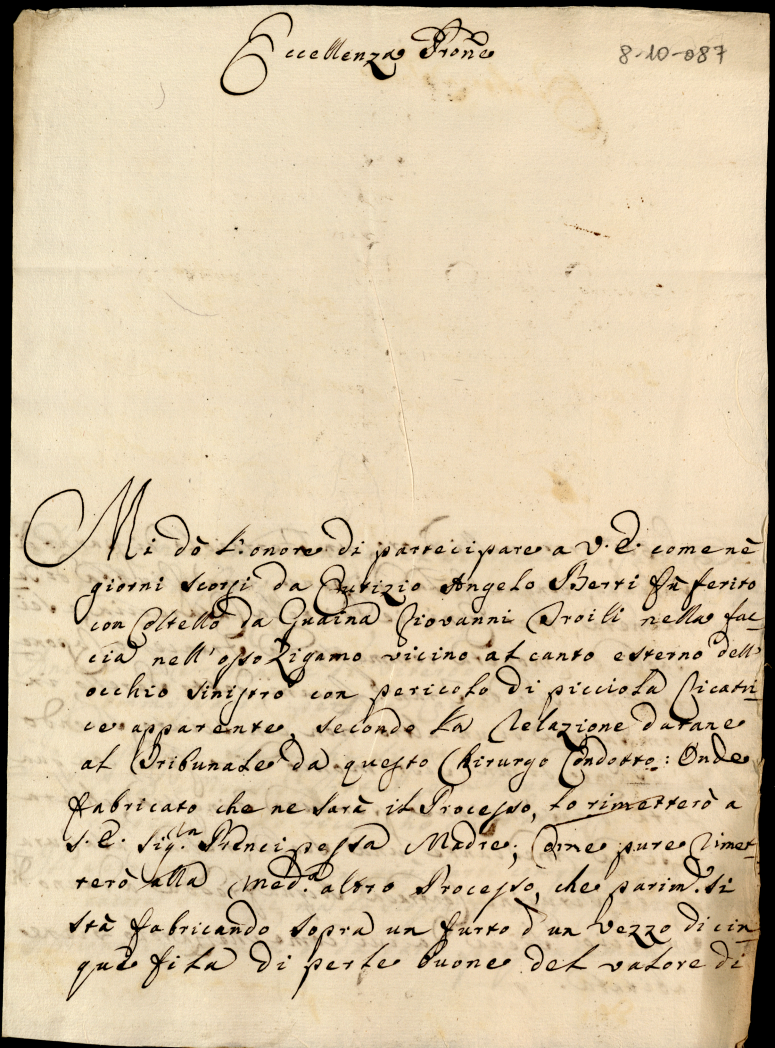 Eccellenza Prone
8-10-087
Mi dò l'onore di partecipare a V. E. come nè
giorni scorsi da Angelo Berti fù ferito
con Coltello da Guaina Giovanni Troili nella fac-
cia nell'osso Zigamo vicino al canto esterno dell'
occhio sinistro con pericolo di picciola Cicatri-
ce apparente, seconde la Relazione datane
al Tribunale da questo Chirurgo Condotto: Onde
fabricato che ne sarà il Processo, lo rimetterò a
S. E. Sig.ra Prencipessa Madre; Come pure rimet-
terò alla Med.a altro Processo, che parim.e si
stà fabricando sopra un furto d'un vezzo di cin-
que fila di perle buone del valore di